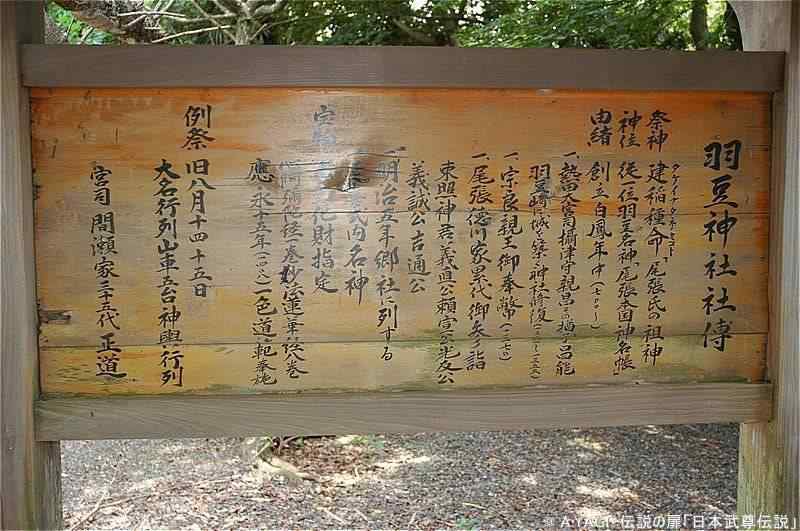 羽豆神社社傳
祭神 建稲種命 尾張氏の祖神
タケイナタネノミコト
神位 従一位羽豆名神「尾張本国神名帳」
由緒 創立白鳳年中
一、熱田大宮司攝津守親昌の猶子昌能
羽豆崎に城を築き神社修復
一、宗良親王御奉幣
一、尾張徳川家累代御矢の詣
東照神君 義直公 頼宣公 光友公
義誠公 吉通公
明治五年郷社に列する
式内名神
化財指定
一巻 妙法蓮華経
應永十五年(一四〇八)一色道範奉施
例祭 旧八月十四十五日
大名行列山車五台神輿行列
宮司 間瀬家三十五代 正道
© AYAC 伝説の扉「日本武尊伝説」